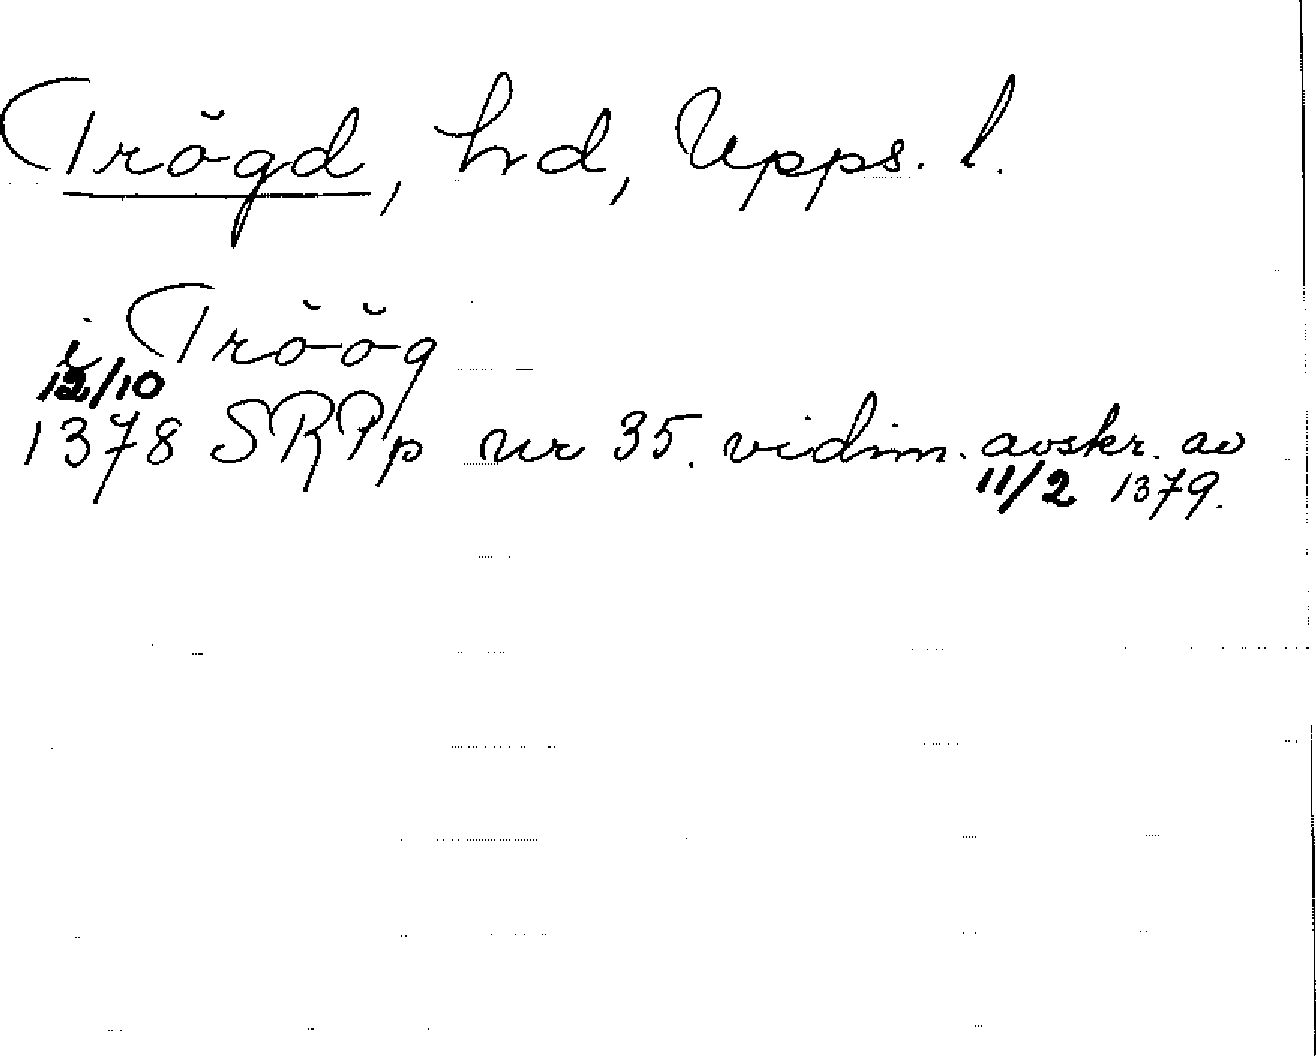 Trögd, hd, Upps. l.
i Tröög
12/10
1378 SRPp nr 35. vidim. avskr. av
11/2 1379.